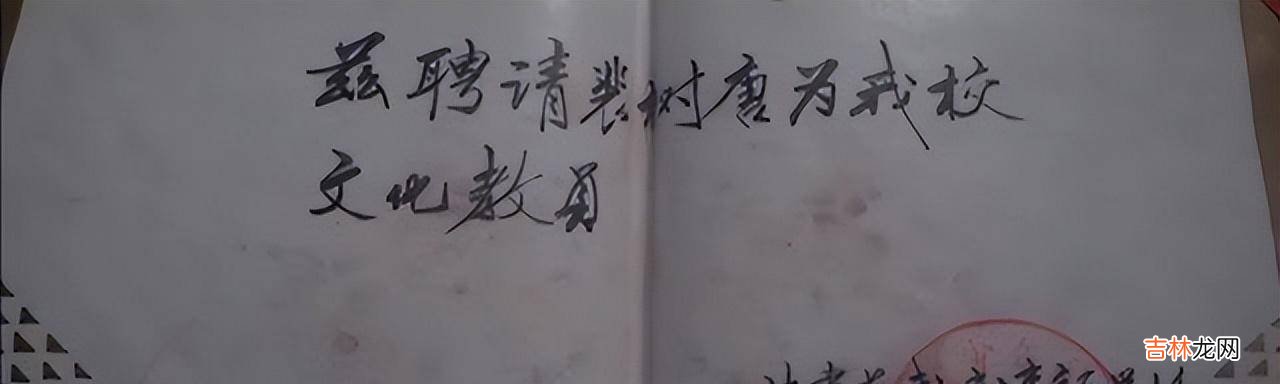 兹聘请裴树唐为我校
文化教员
吉林龙网